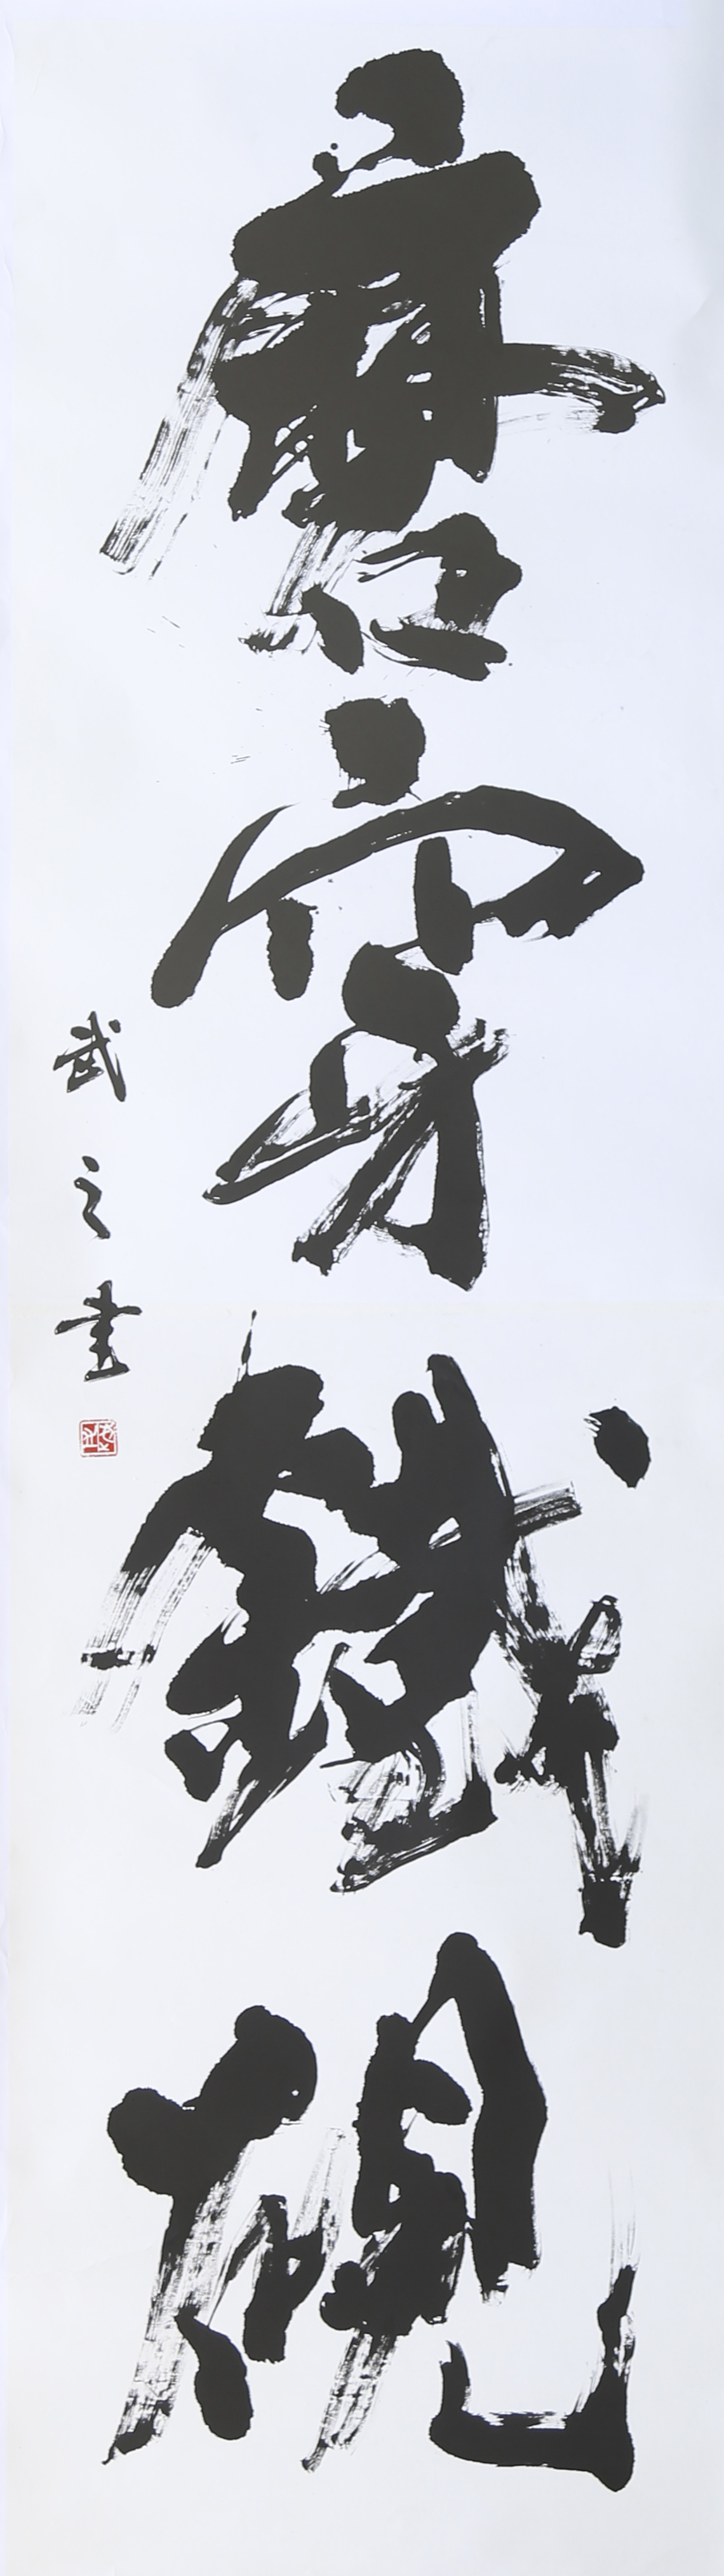 磨穿鐵硯
武之書